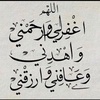 اللهم
اغفر لي وارحمني
واهدني
وعافني وارزقني